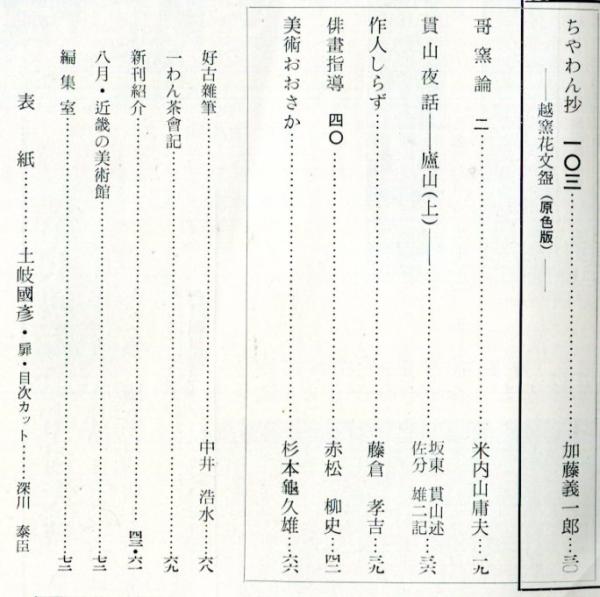 ちゃわん抄 一〇三……加藤義一郎…三〇
――越窯花文盌(原色版)――
哥窯論 二……米内山庸夫…一九
貫山夜話――廬山(上)――……坂東 貫山述 佐分 雄二記…三六
作人しらず……藤倉 孝吉…三九
俳畫指導 四〇……赤松 柳史…四二
美術おおさか……杉本龜久雄…六六
好古雜筆……中井 浩水…六八
一わん茶會記……六九
新刊紹介……四三・六一
八月・近畿の美術館……七三
編集室……七二
表紙……土岐國彥・扉・目次カット……深川 泰臣